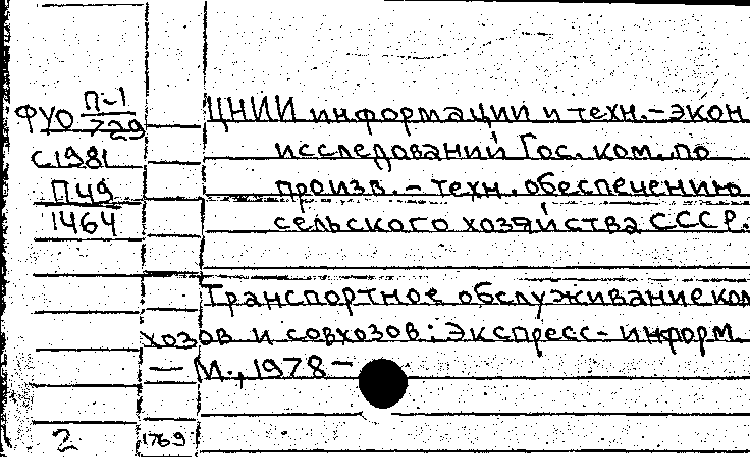 ФУО П-1/729
с1981
П49
1464
ЦНИИ информации и техн.-экон
исследований Гос. ком. по
произв.-техн. обеспечению
сельского хозяйства СССР.
Транспортное обслуживание кол
хозов и совхозов: Экспресс-информ.
— М., 1978 —
2
1769